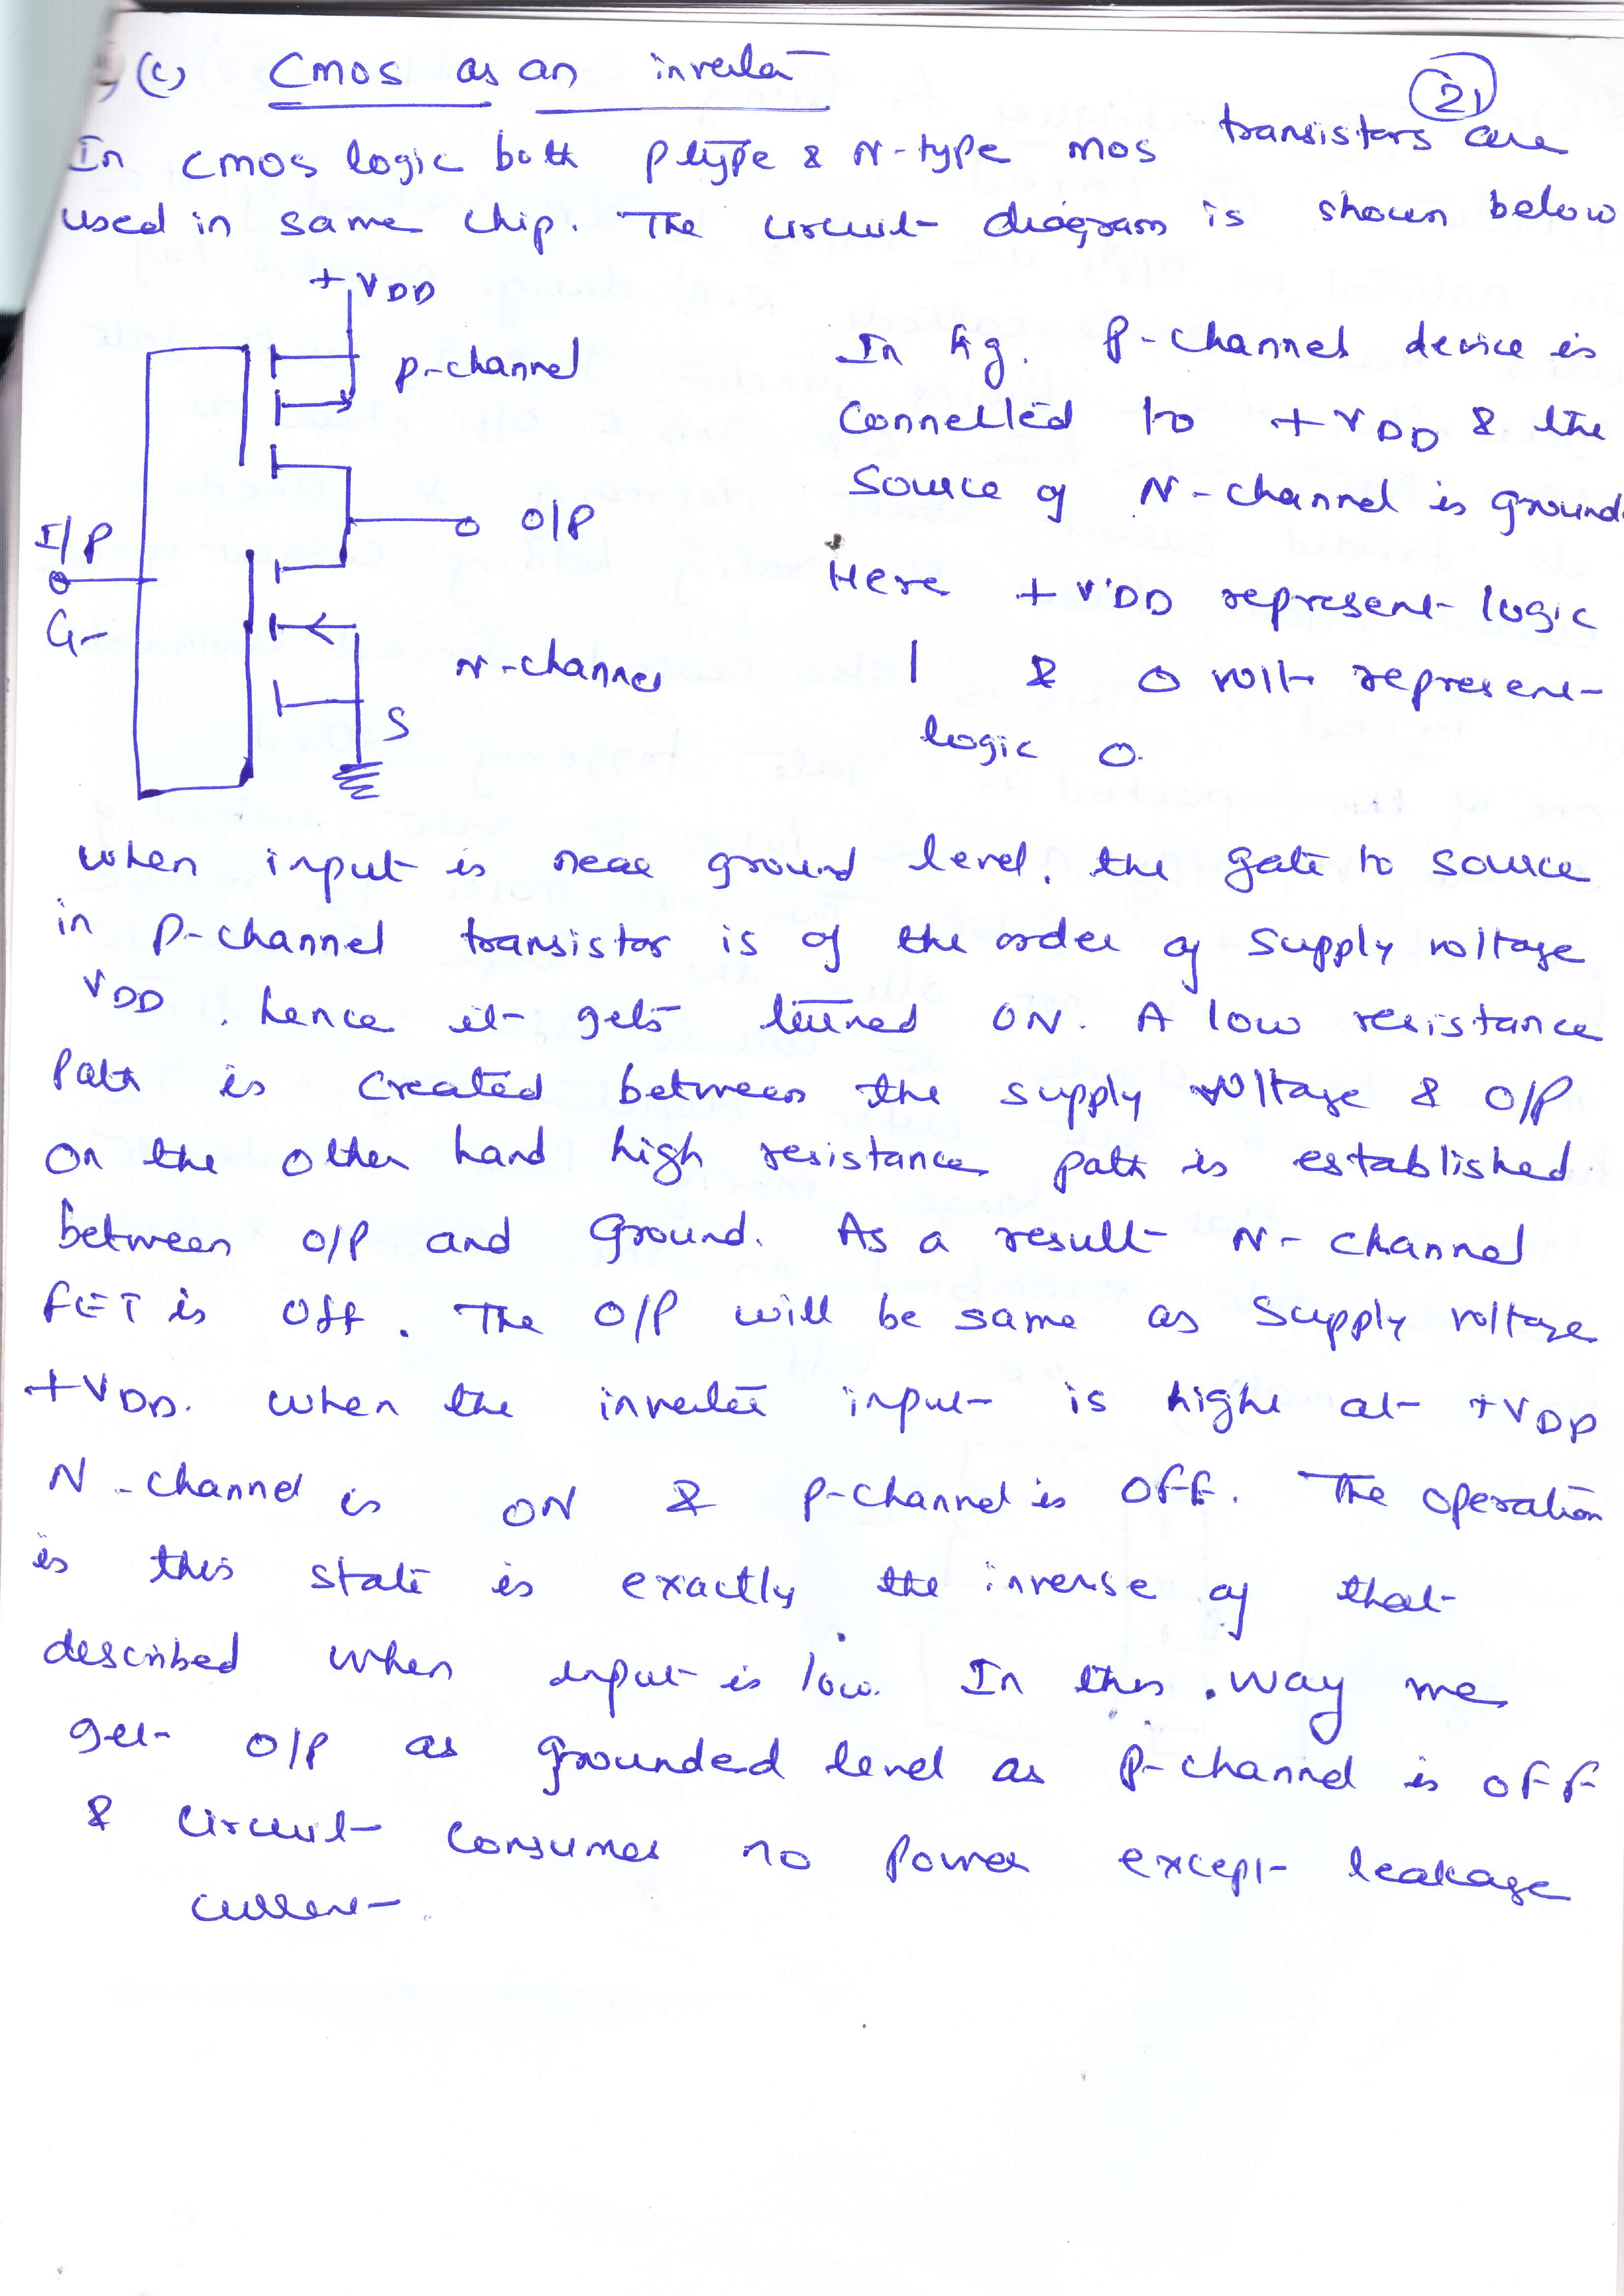 (c) CMOS as an inverter
21
In CMOS logic both p type & N-type MOS transistors are
used in same chip. The circuit diagram is shown below
+VDD
p-channel
O/P
I/P
G
N-channel
S
In fig. P-channel device is
connected to +VDD & the
Source of N-channel is ground.
Here +VDD represent logic
1 & 0 volt represent
logic 0.
when input is near ground level, the gate to source
in P-channel transistor is of the order of supply voltage
VDD. hence it gets turned ON. A low resistance
Path is created between the supply voltage & O/P
On the other hand high resistance path is established
between O/P and Ground. As a result N-channel
FET is off. The O/P will be same as supply voltage
+VDD. when the inverter input is highe at +VDD
N-channel is ON & P-channel is OFF. The operation
is this state is exactly the inverse of that
described when input is low. In this way we
get O/P as grounded level as P-channel is OFF
& circuit consumes no power except leakage
current.